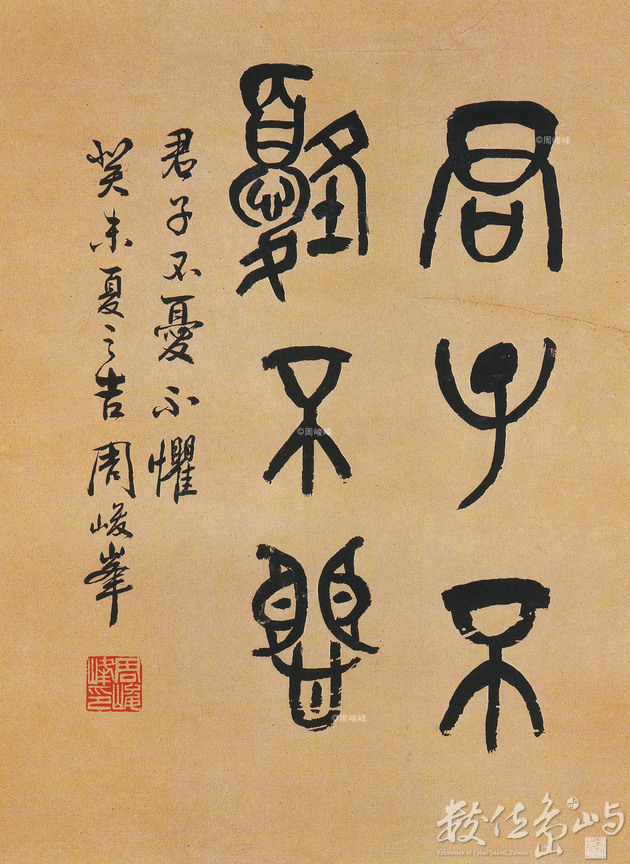 君子不
憂不懼
君子不憂不懼
癸未夏之吉 周峻峯
周峻峰印
©周峻峰
©周峻峰
©周峻峰
數位島嶼
Exhibition of Cyber Island, Taiwan